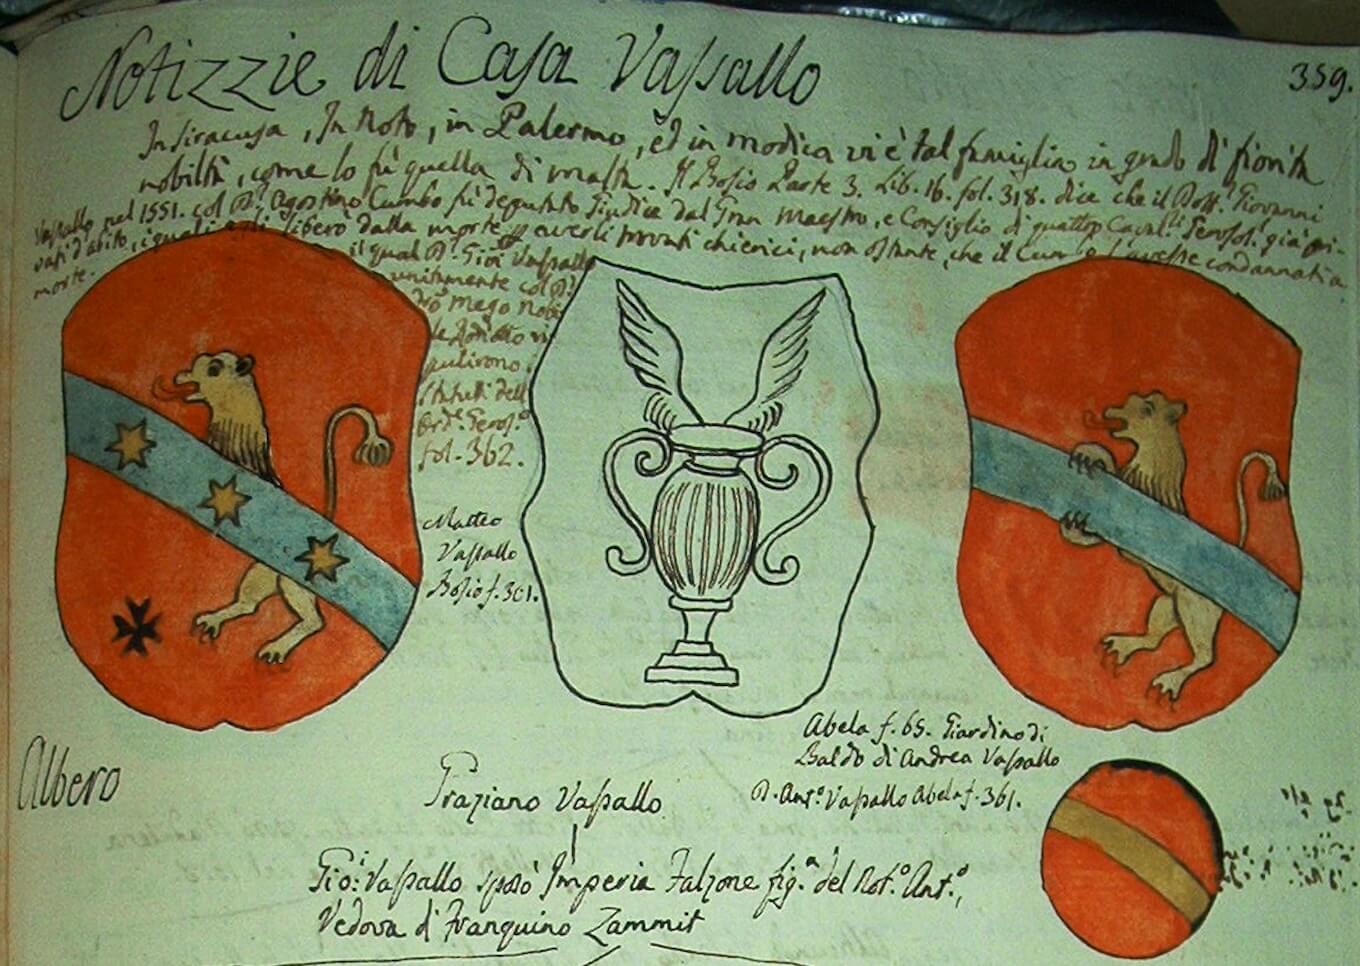 Notizzie di Casa Vassallo
359.
In Siracusa, In Noto, in Palermo, ed in modica vi è tal famiglia in grado di fiorita
nobiltà, come lo fù quella di malta. Il Bosio Parte 3. Lib. 16. fol. 318. dice che il Dott. Giovanni
Vassallo nel 1551. col D. Agostino Cumbo fù deputato Giudice dal Gran Maestro, e Consiglio di quattro Caval.ri Gerosol. già pri-
vati d'abito, i quali egli liberò dalla morte averli provati chierici, non ostante, che il Cumbo l'avesse condannati a
morte.
il qual D. Gio: Vassallo
unitamente col D.
mego Nobi
le
pulirono i
Statuti dell
Ord.e Geros.o
fol. 362.
Matteo
Vassallo
Bosio f. 301.
Abela f. 65. Giardino di
Baldo di Andrea Vassallo
D. Ant.o Vassallo Abela f. 361.
Albero
Graziano Vassallo
Gio: Vassallo sposò Imperia Falzone fig.a del Not.o Ant.o,
Vedova di Franquino Zammit